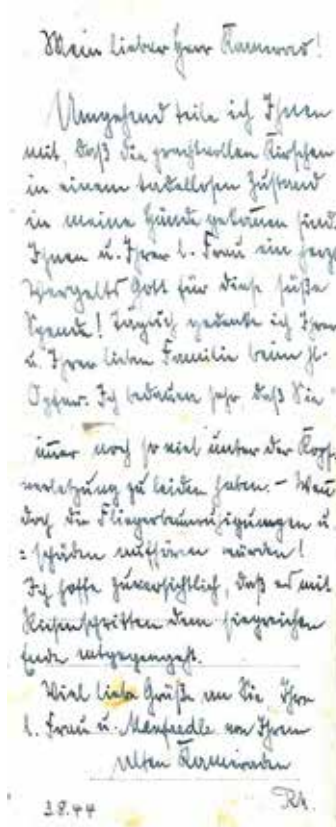 Mein lieber Herr Kamerad!
Umgehend teile ich Ihnen
mit, daß die prachtvollen Kirschen
in einem tadellosen Zustand
in meine Hände gekommen sind.
Ihnen u. Ihrer l. Frau ein herzl.
Vergelts Gott für diese süße
Spende! Täglich gedenke ich Ihrer
u. Ihrer lieben Familie beim hl.
Opfer. Ich bedaure sehr, daß Sie
immer noch so viel unter der Kopf-
verletzung zu leiden haben. – Wenn
doch die Fliegerbeunruhigungen u.
=schäden aufhören würden!
Ich hoffe zuversichtlich, daß es mit
Riesenschritten dem siegreichen
Ende entgegengeht.
Viel liebe Grüße an Sie, Ihre
l. Frau u. Manfredle von Ihrem
alten Kameraden
3.8.44